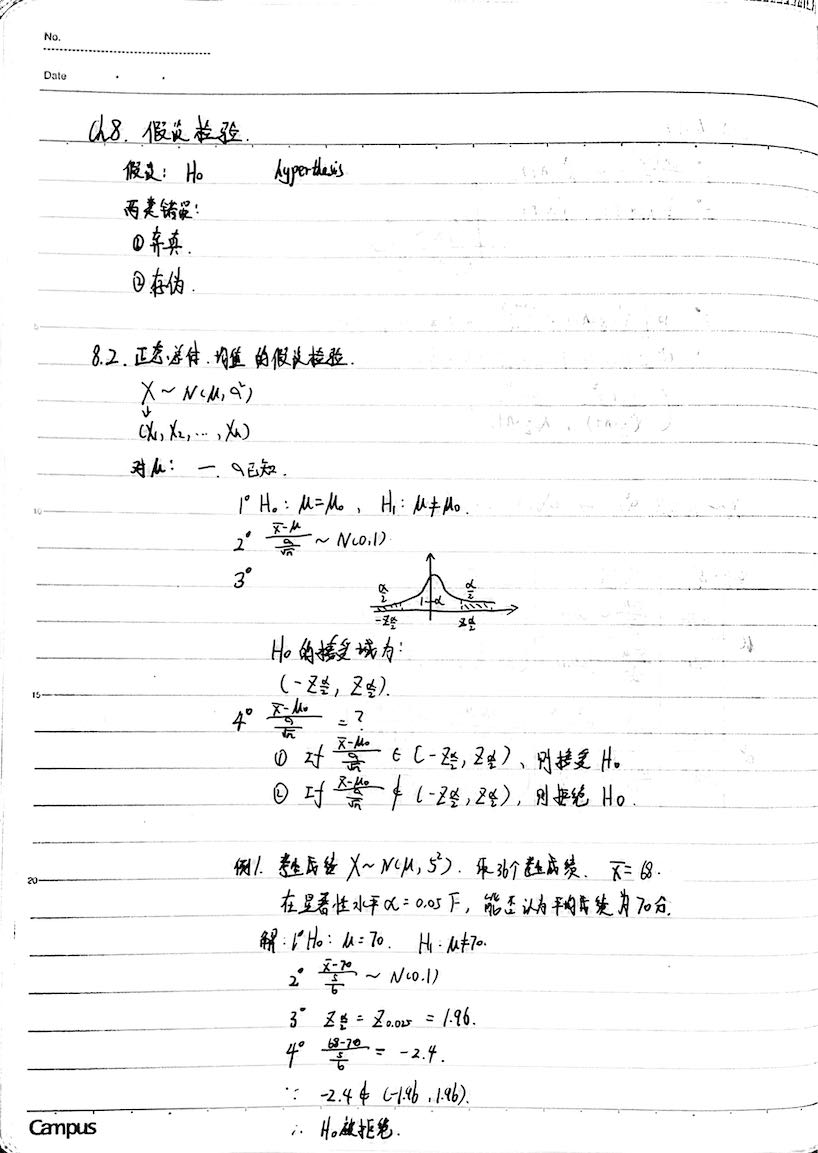 No.
Date
Ch8. 假设检验.
假设: H₀ hyperthesis
两类错误:
① 弃真.
② 存伪.
8.2. 正态总体.均值 的假设检验.
X ~ N(μ, σ²)
↓
(X₁, X₂, ..., Xₙ)
对μ: 一. σ已知.
1° H₀: μ=μ₀, H₁: μ≠μ₀.
2° (x̄-μ)/(σ/√n) ~ N(0,1)
3° α/2 1-α α/2
-Zα/2 Zα/2
H₀的接受域为:
(-Zα/2, Zα/2).
15
4° (x̄-μ₀)/(σ/√n) = ?
① If (x̄-μ₀)/(σ/√n) ∈ (-Zα/2, Zα/2), 则接受 H₀
② If (x̄-μ₀)/(σ/√n) ∉ (-Zα/2, Zα/2), 则拒绝 H₀.
20
例1. 考生成绩 X~N(μ, 5²). 取36个考生成绩. x̄=68.
在显著性水平α=0.05下, 能否认为平均成绩为70分.
解: 1° H₀: μ=70. H₁: μ≠70.
2° (x̄-70)/(5/6) ~ N(0.1)
3° Zα/2 = Z0.025 = 1.96.
4° (68-70)/(5/6) = -2.4.
∵ -2.4 ∉ (-1.96, 1.96).
∴ H₀被拒绝.
Campus